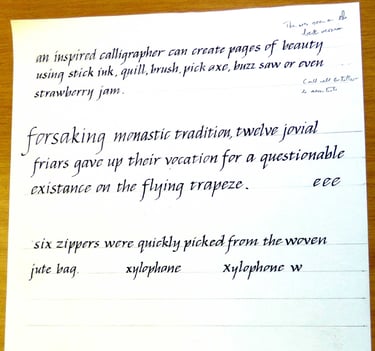 an inspired calligrapher can create pages of beauty
using stick ink, quill, brush, pick axe, buzz saw or even
strawberry jam.
forsaking monastic tradition, twelve jovial
friars gave up their vocation for a questionable
existance on the flying trapeze. eee
six zippers were quickly picked from the woven
jute bag xylophone Xylophone w